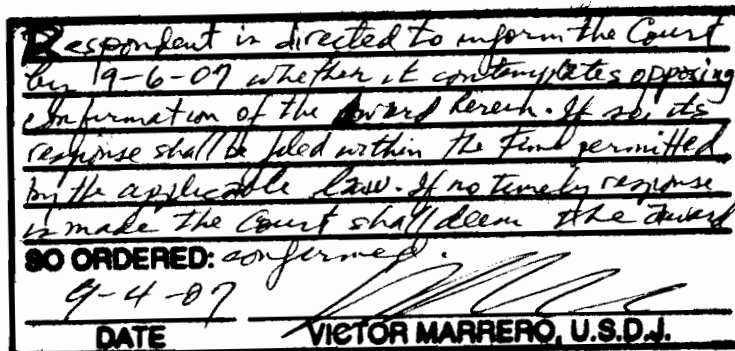 Respondent is directed to inform the Court
by 9-6-07 whether it contemplates opposing
confirmation of the Award herein. If so, its
response shall be filed within the time permitted
by the applicable law. If no timely response
is made the Court shall deem the Award
SO ORDERED: confirmed.
9-4-07
DATE VICTOR MARRERO, U.S.D.J.